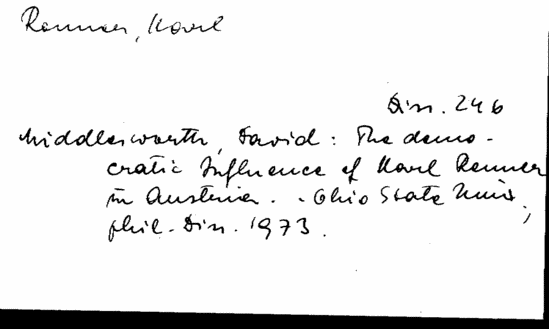 Renner, Karl
Diss. 246
Middlesworth, David: The demo-
cratic Influence of Karl Renner
in Austria. - Ohio State Univ.,
phil. Diss. 1973.